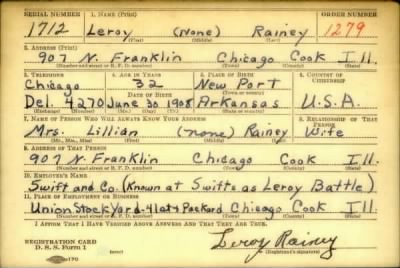 SERIAL NUMBER 1. NAME (Print) ORDER NUMBER
1712 Leroy (none) Rainey 1279
(First) (Middle) (Last)
2. ADDRESS (Print)
907 N. Franklin Chicago Cook Ill.
(Number and street or R. F. D. number) (Town) (County) (State)
3. TELEPHONE 4. AGE IN YEARS 5. PLACE OF BIRTH 6. COUNTRY OF CITIZENSHIP
Chicago 32 New Port
DATE OF BIRTH
Del. 4270 June 30 1908 Arkansas U.S.A.
7. NAME OF PERSON WHO WILL ALWAYS KNOW YOUR ADDRESS 8. RELATIONSHIP OF THAT PERSON
Mrs. Lillian (none) Rainey Wife
(Mr., Mrs., Miss) (First) (Middle) (Last)
9. ADDRESS OF THAT PERSON
907 N. Franklin Chicago Cook Ill.
(Number and street or R. F. D. number) (Town) (County) (State)
10. EMPLOYER'S NAME
Swift and Co. (Known at Swifts as Leroy Battle).
11. PLACE OF EMPLOYMENT OR BUSINESS
Union Stock Yard - 41st & Packard Chicago Cook Ill.
(Number and street or R. F. D. number) (Town) (County) (State)
I AFFIRM THAT I HAVE VERIFIED ABOVE ANSWERS AND THAT THEY ARE TRUE.
REGISTRATION CARD
D. S. S. Form 1 Leroy Rainey
(Registrant's signature)